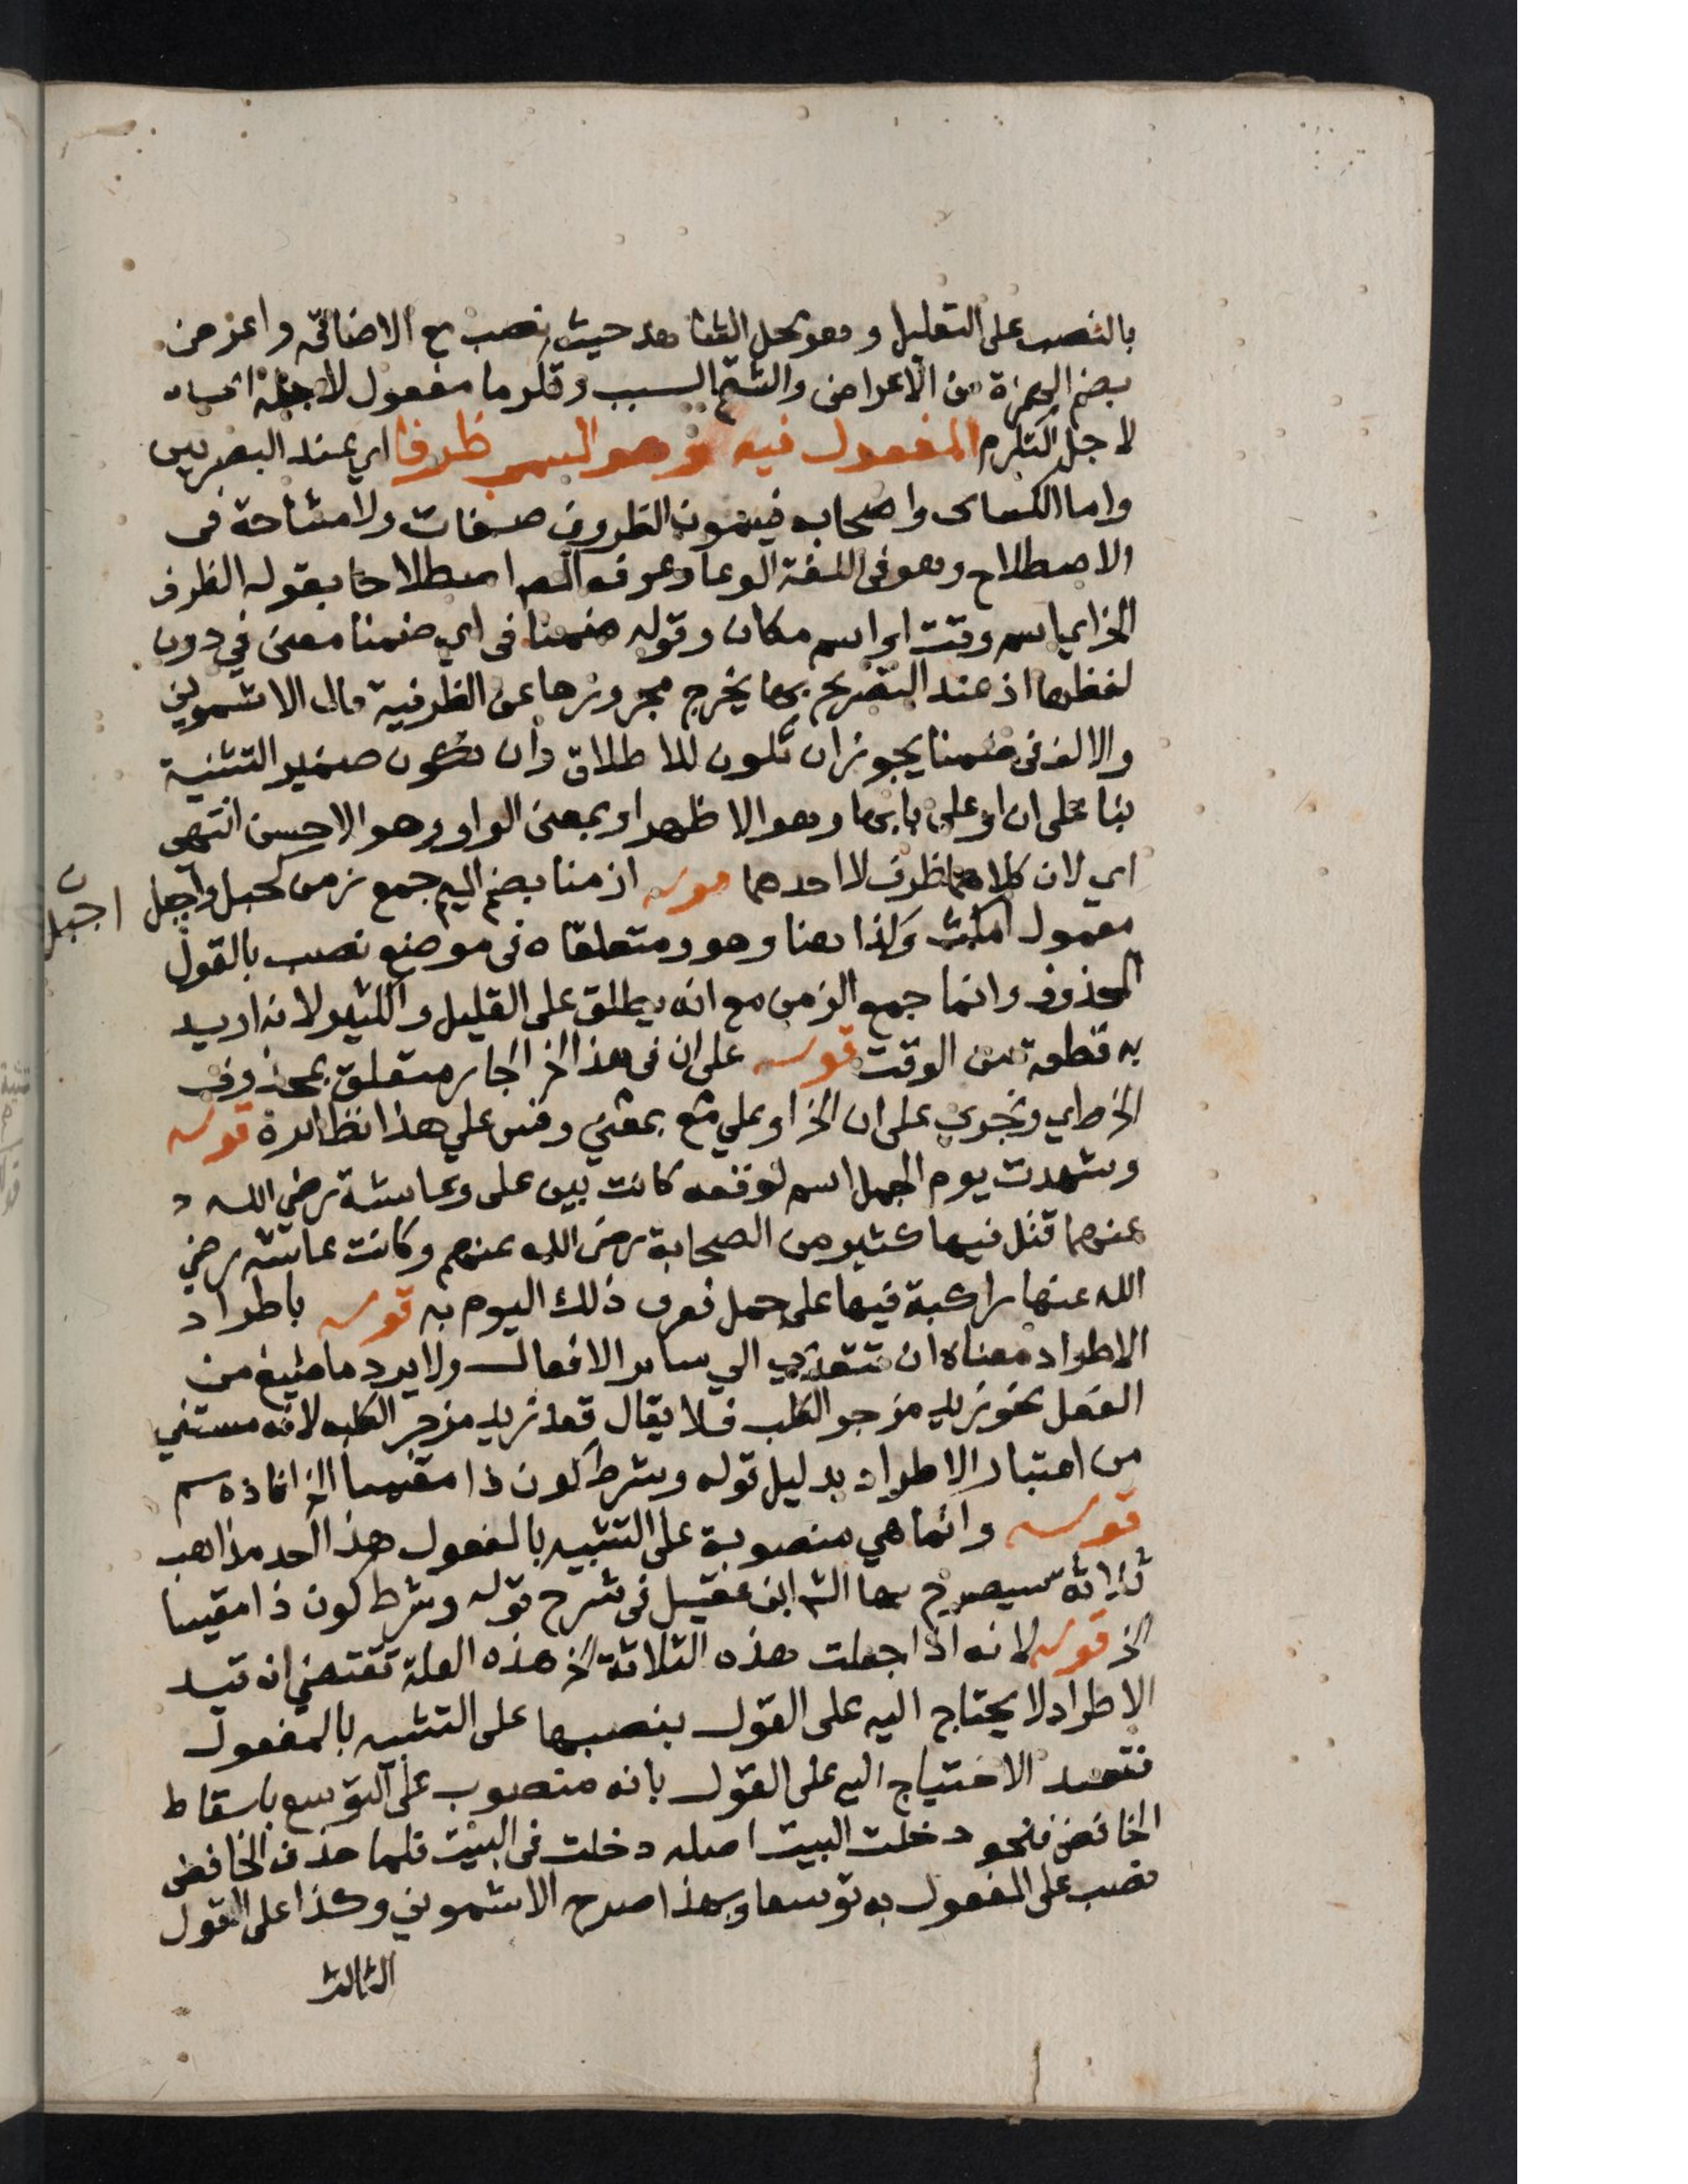 بالنصب على التعليل وهو محل الشاهد حيث نصب مع الاضافة واعرض
بضم الهمزة من الاعراض والشتم السبب وتكرما مفعول لاجله اي
لاجل التكرم المفعول فيه وهو المسمى ظرفا اي عند البصريين
واما الكساى واصحابه فيسمون الظروف صفات ولا مشاحة فى
الاصطلاح وهو فى اللغة الوعا وعرفه المص اصطلاحا بقوله الظرف
الخ اي اسم وقت او اسم مكان وقوله ضمنا فى اي ضمنا معنى في دون
لفظها اذ عند التصريح بها يخرج مجرورها عن الظرفية قال الاشموني
والالف فى ضمنا يجوز ان تكون للاطلاق وان تكون ضمير التثنية
بنا على ان او على بابها وهو الاظهر او بمعنى الواو وهو الاحسن انتهى
اي لان كلاهما ظرف لا احدهما قوله ازمنا بضم الميم جمع زمن كجبل واجبل
اجبل ن
معمول امكث وكذا هنا وهو ومتعلقاه فى موضع نصب بالقول
المحذوف وانما جمع الزمن مع انه يطلق على القليل والكثير لانه اريد
به قطعة من الوقت قوله على ان فى هذا الخ الجار متعلق بمحذوف
الخ اي وتجري على ان الخ او على مع بمعنى وقس علي هذا نظائره قوله
وشهدت يوم الجمل اسم لوقعه كانت بين على وعايشة رضي الله
عنهما قتل فيها كثير من الصحابة رضى الله عنهم وكانت عايشه رضي
الله عنها راكبة فيها على جمل فعرف ذلك اليوم به قوله باطراد
الاطراد معناه ان تتعدي الي ساير الافعال ولا يرد ما صيغ من
الفعل نحو زيد مزجر الكلب فلا يقال قعد زيد مزجر الكلب لانه مستثنى
من اعتبار الاطراد بدليل قوله وشرط كون ذا مقيسا الخ افاده سم
قوله وانما هي منصوبة على التشبيه بالمفعول هذا احد مذاهب
ثلاثة سيصرح بها الش ابن عقيل فى شرح قوله وشرط كون ذا مقيسا
الخ قوله لانه اذا جعلت هذه الثلاثة الخ هذه العلة تقتضي ان قيد
الاطراد لا يحتاج اليه على القول بنصبها على التشبيه بالمفعول
الاحتياج اليه على القول بانه منصوب على التوسع باسقاط
الخافض فنحو دخلت البيت اصله دخلت فى البيت فلما حذف الخافض
نصب على المفعول به توسعا وبهذا صرح الاشموني وكذا على القول
الثالث